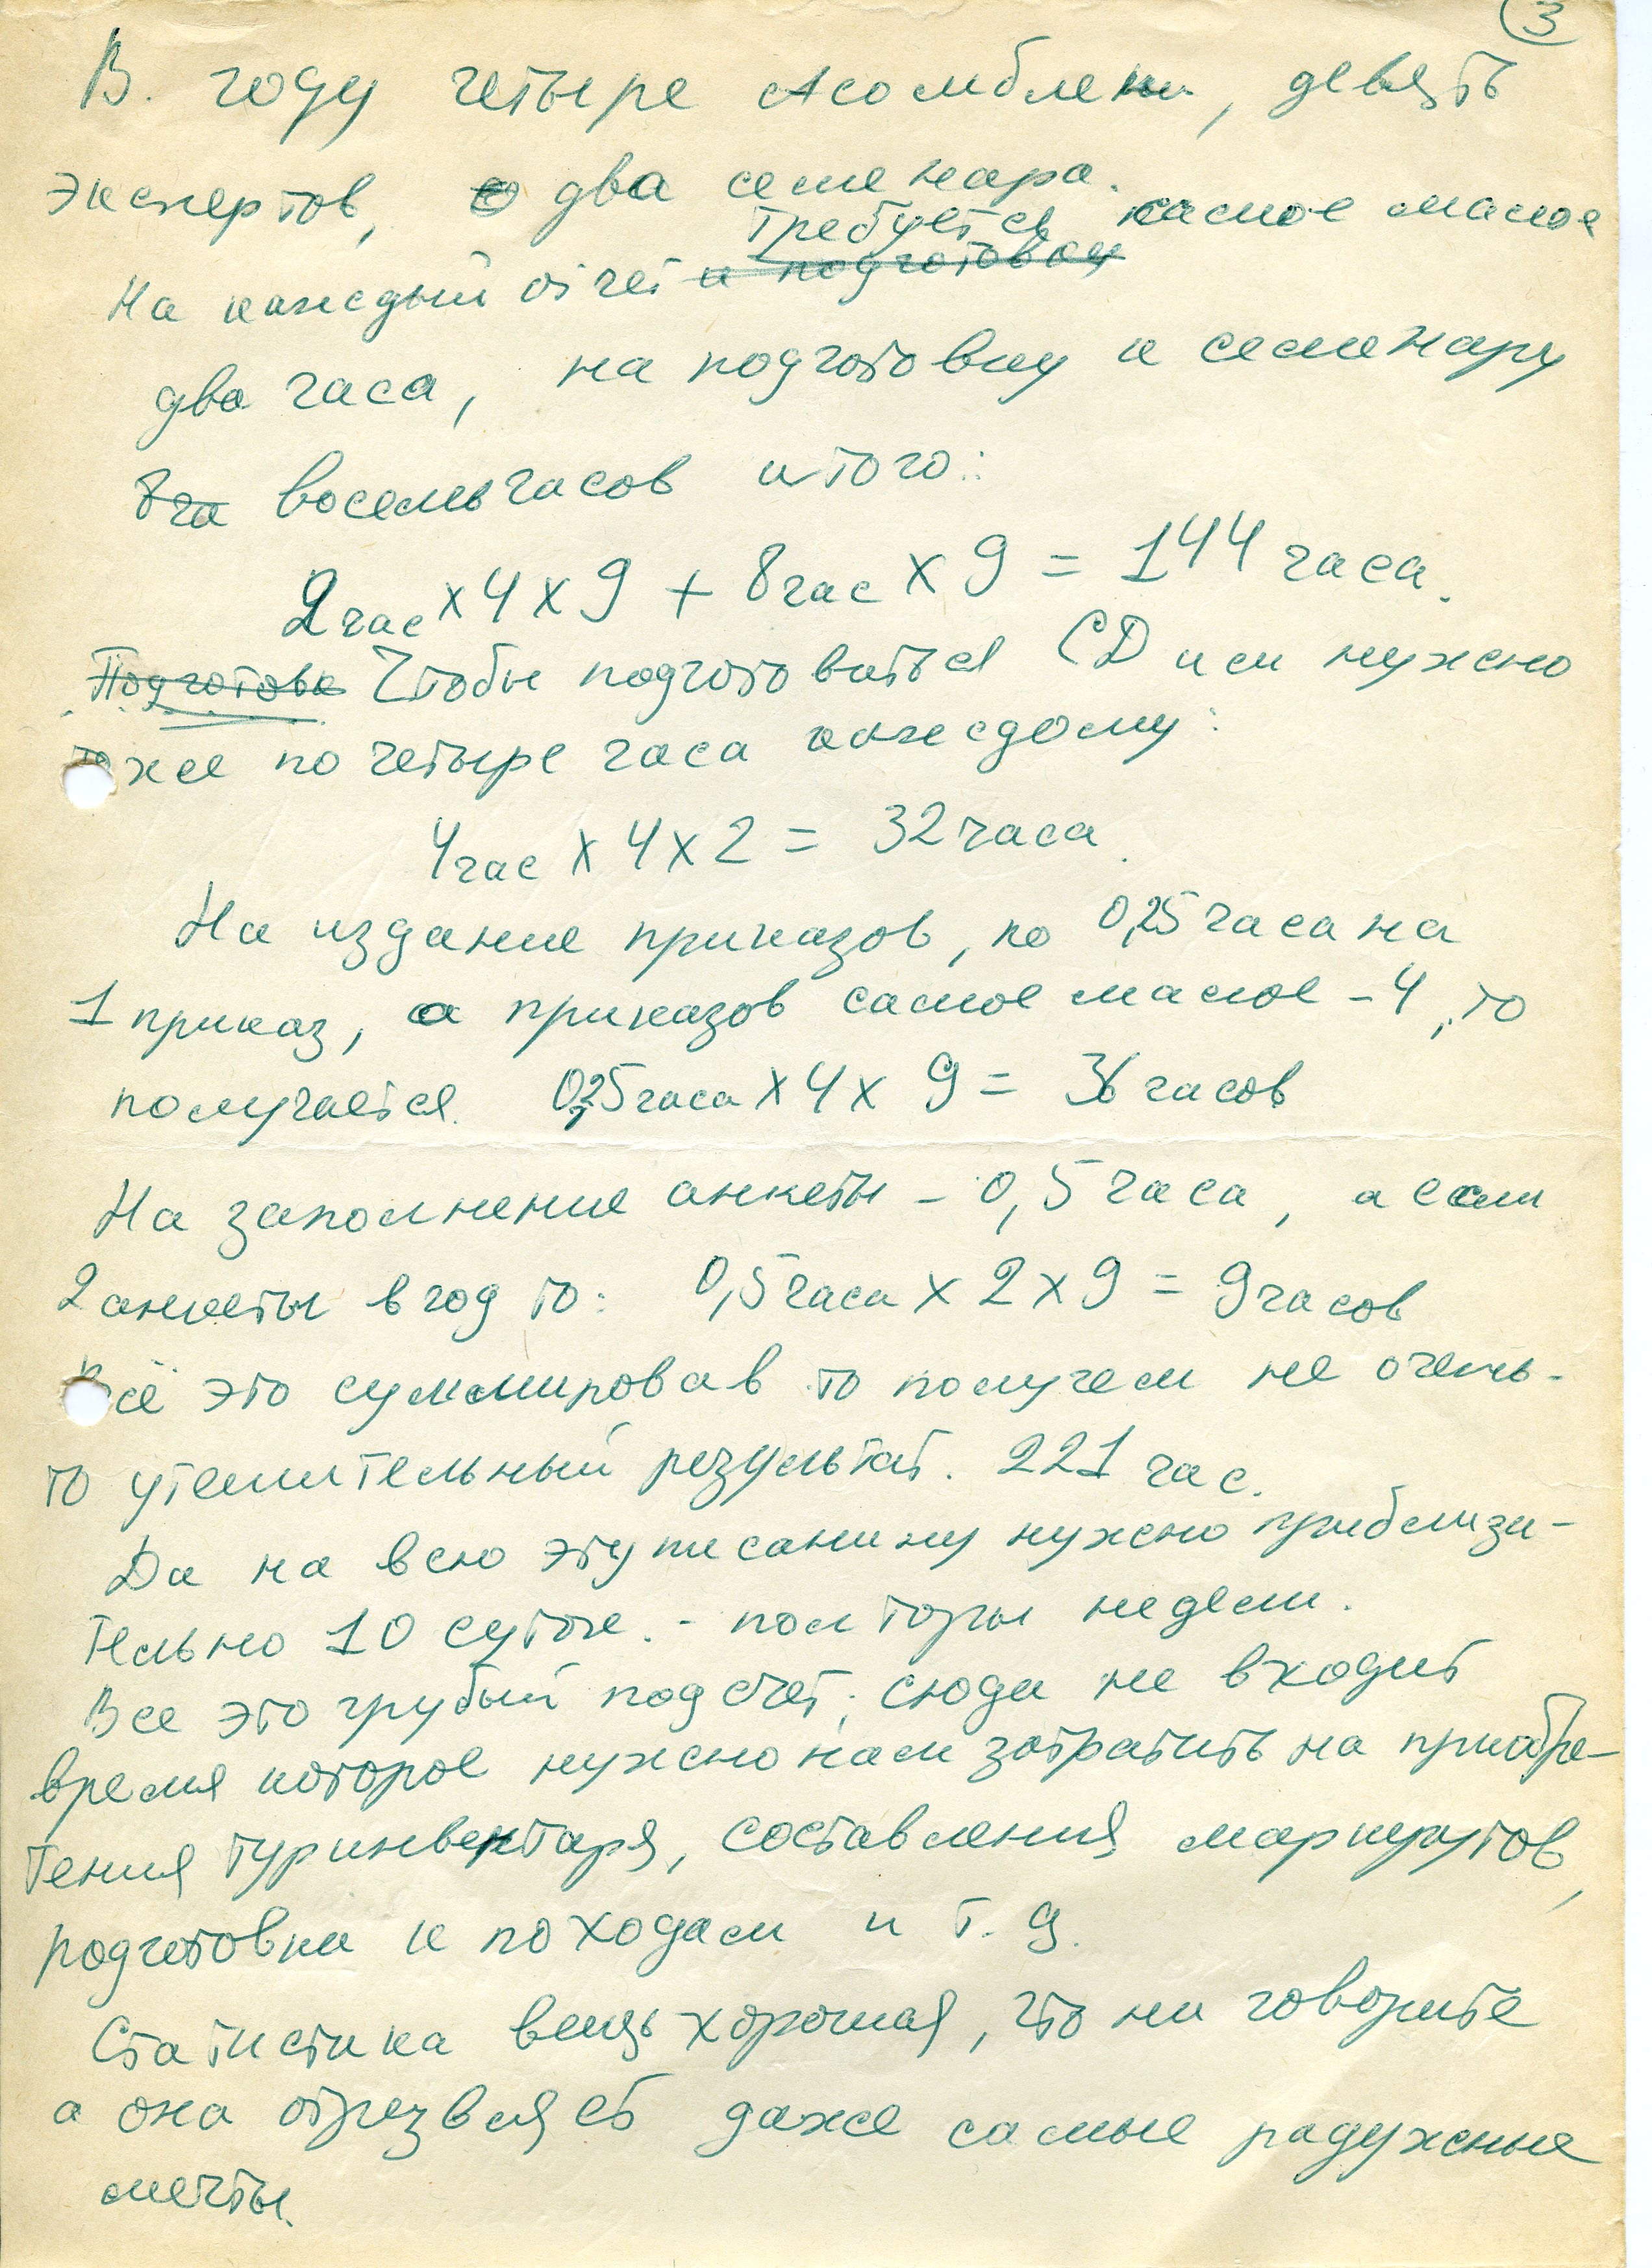 3
В. году четыре Асомблеи, девять
экспертов, два семенара.
требуется самое малое
На каждый отчет к подготовки
два часа, на подготовку к семенару
8ча восемь часов итого:
2час х 4 х 9 + 8час х 9 = 144 часа.
Подготовк Чтобы подготовиться СД и см нужно
тоже по четыре часа каждому:
4час х 4 х 2 = 32 часа.
На издание приказов, по 0,25 часа на
1 приказ, а приказов самое малое - 4, то
получается. 0,25 часа х 4 х 9 = 36 часов
На заполнение анкеты - 0,5 часа, а если
2 анкеты в год то: 0,5 часа х 2 х 9 = 9 часов
Всё это суммировав то получем не очень-
то утешительный результат. 221 час.
Да на всю эту писанину нужно приблизи-
тельно 10 суток. - полторы недели.
Все это грубый подсчет, сюда не входит
время которое нужно нам затратить на приобре-
тения туринвентаря, составления маршрутов,
подготовки к походам и т. д.
Статистика вещь хорошая, что ни говорите
а она отрезвляет даже самые радужные
мечты.